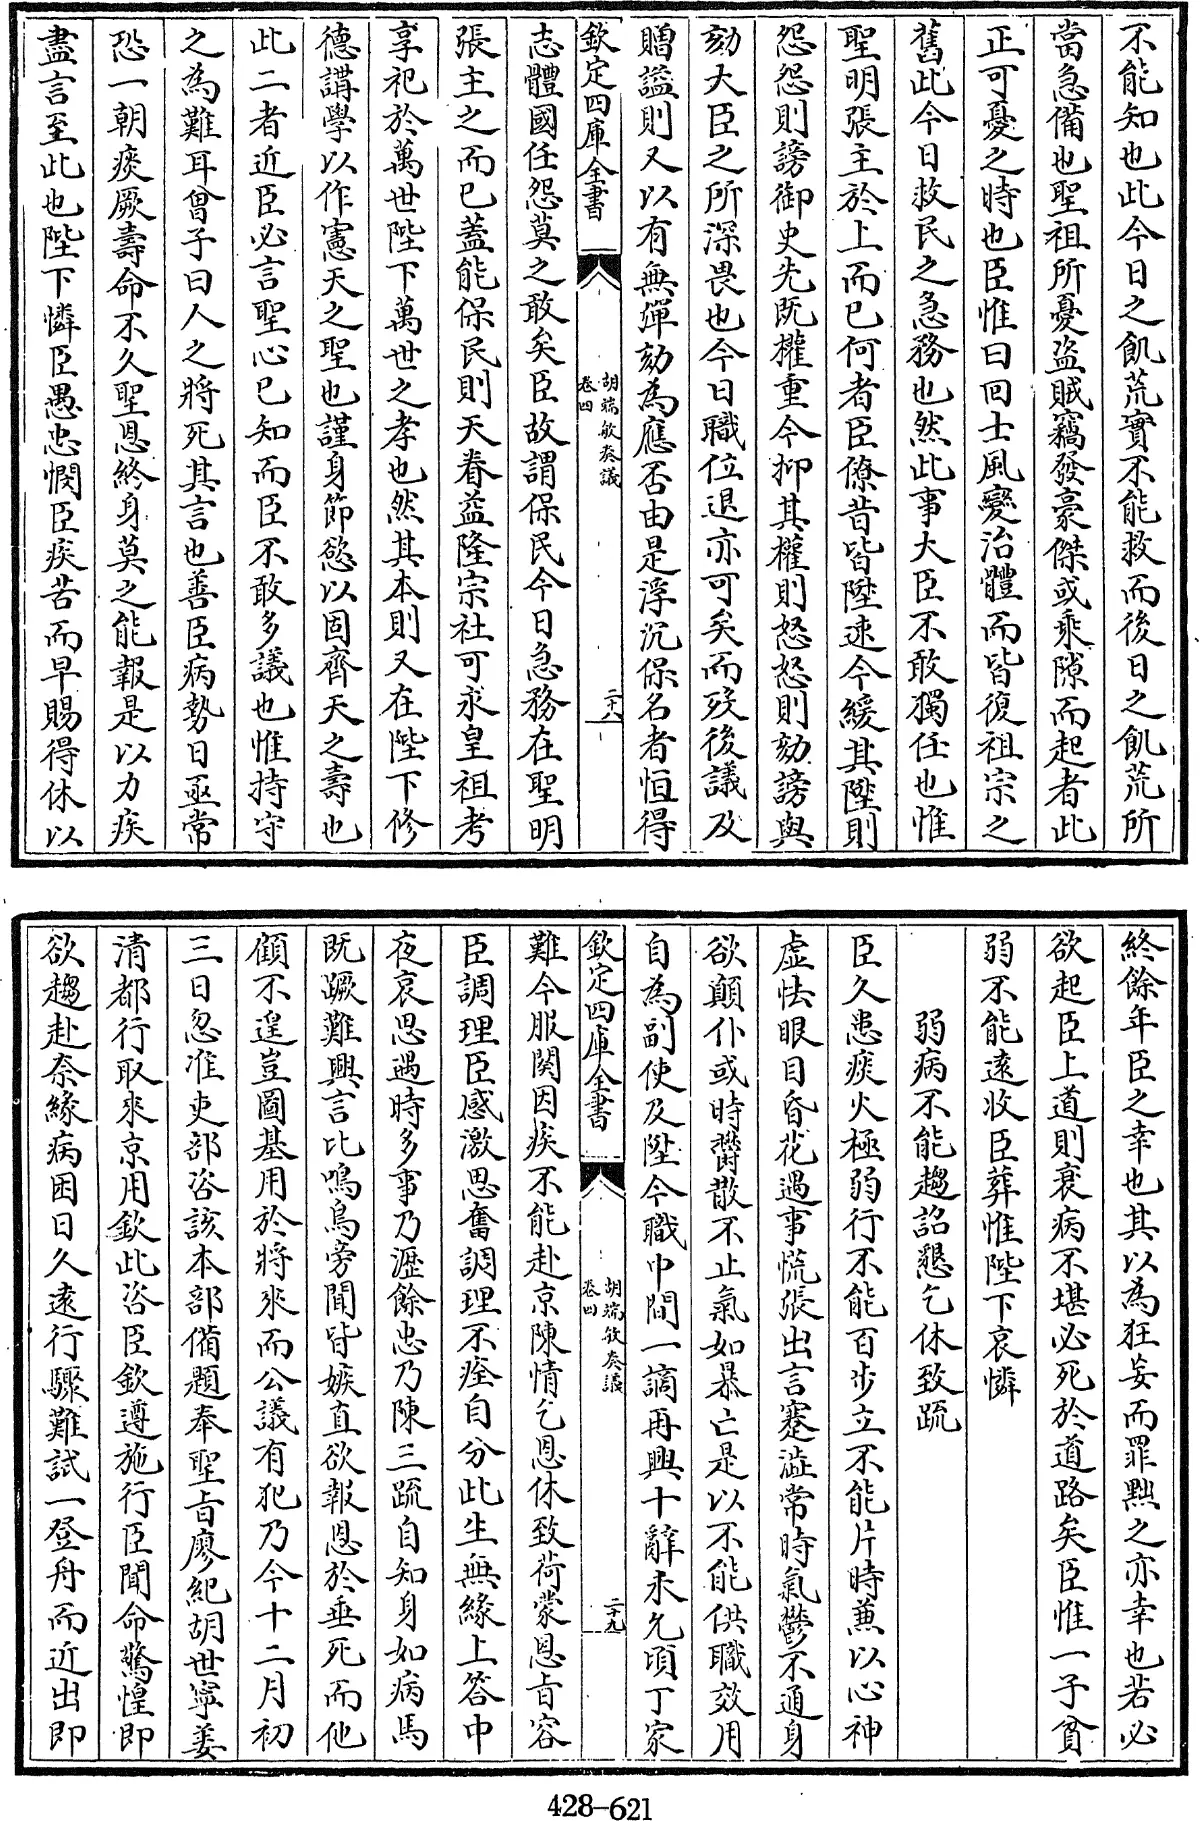 不能知也此今日之飢荒實不能救而後日之飢荒所
當急備也聖祖所憂盜賊竊發豪傑或乘隙而起者此
正可憂之時也臣惟曰回士風變治體而皆復祖宗之
舊此今日救民之急務也然此事大臣不敢獨任也惟
聖明張主於上而已何者臣僚昔皆陞速今緩其陞則
怨怨則謗御史先既權重今抑其權則怒怒則劾謗與
劾大臣之所深畏也今日職位退亦可矣而歿後議及
贈諡則又以有無彈劾為應否由是浮沉保名者恒得
欽定四庫全書
胡端敏奏議
卷四
二十八
志體國任怨莫之敢矣臣故謂保民今日急務在聖明
張主之而已蓋能保民則天眷益隆宗社可永皇祖考
享祀於萬世陛下萬世之孝也然其本則又在陛下修
德講學以作憲天之聖也謹身節慾以固齊天之壽也
此二者近臣必言聖心已知而臣不敢多議也惟持守
之為難耳曾子曰人之將死其言也善臣病勢日亟常
恐一朝痰厥壽命不久聖恩終身莫之能報是以力疾
盡言至此也陛下憐臣愚忠憫臣疾苦而早賜得休以
終餘年臣之幸也其以為狂妄而罪黜之亦幸也若必
欲起臣上道則衰病不堪必死於道路矣臣惟一子貧
弱不能遠收臣葬惟陛下哀憐
弱病不能趨詔懇乞休致疏
臣久患痰火極弱行不能百步立不能片時兼以心神
虛怯眼目昏花遇事慌張出言蹇澁常時氣鬱不通身
欲顛仆或時鬱散不止氣如暴亡是以不能供職效用
自為副使及陞今職中間一謫再興十辭未允頃丁家
欽定四庫全書
胡端敏奏議
卷四
二十九
難今服闋因疾不能赴京陳情乞恩休致荷蒙恩旨容
臣調理臣感激思奮調理不痊自分此生無緣上答中
夜哀思遇時多事乃瀝餘忠乃陳三疏自知身如病馬
既蹶難興言比鳴烏旁聞皆嫉直欲報恩於垂死而他
顧不遑豈圖基用於將來而公議有犯乃今十二月初
三日忽准吏部咨該本部備題奉聖旨廖紀胡世寧姜
清都行取來京用欽此咨臣欽遵施行臣聞命驚惶即
欲趨赴奈緣病困日久遠行驟難試一登舟而近出即
428-621